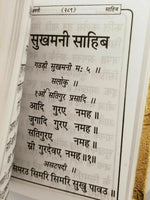 (२८१)
साहिब
सुखमनी साहिब
गउड़ी सुखमनी मः ५ ॥
सलोकु ॥
१ओं सतिगुर प्रसादि ॥
आदि गुरए नमह ॥
जुगादि गुरए नमह ॥
सतिगुरए नमह ॥
श्री गुरदेवए नमह ॥१॥
असटपदी ॥
सिमरउ सिमरि सिमरि सुखु पावउ ॥